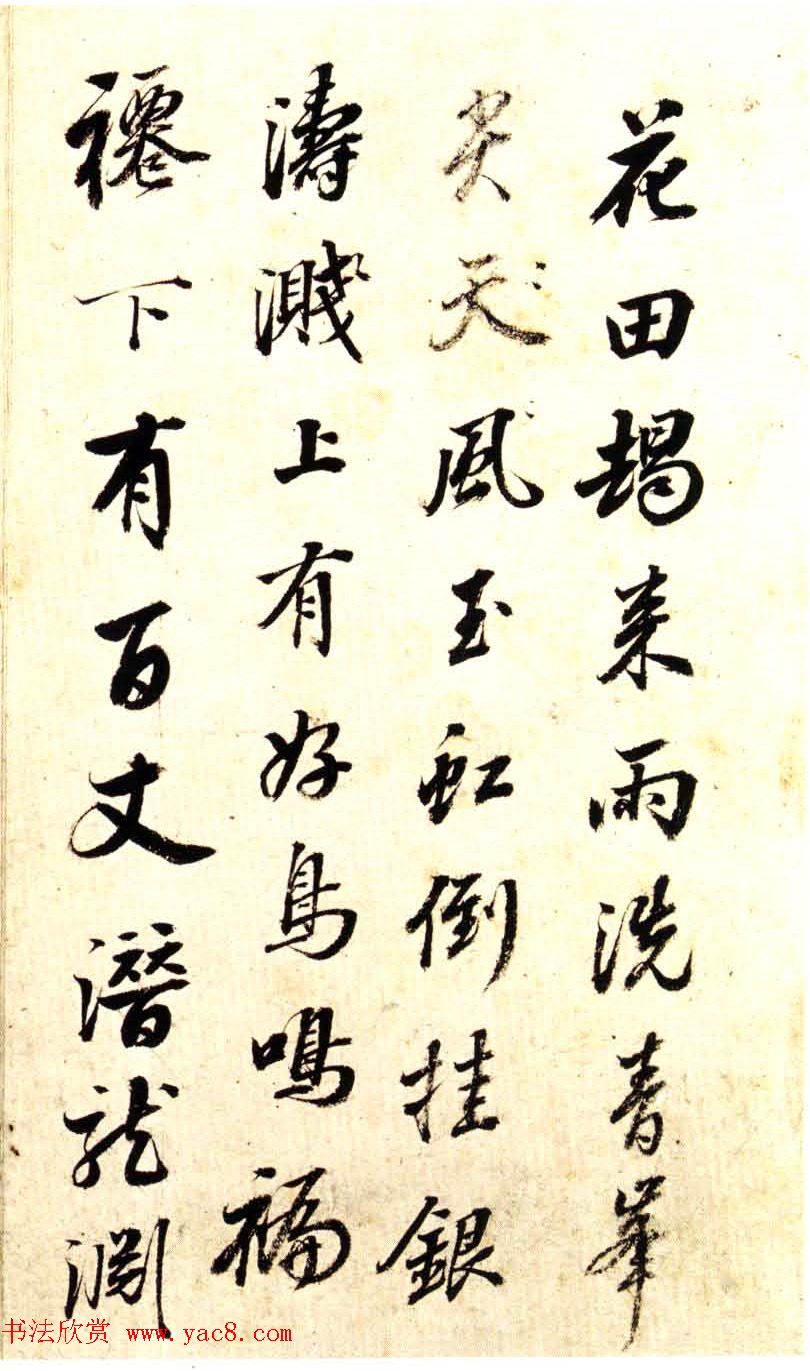 花田朅来雨洗青峯
炎天天風玉虹倒挂銀
濤濺上有好鳥鳴褊
褼下有百丈潛龍淵
书法欣赏 www.yac8.com